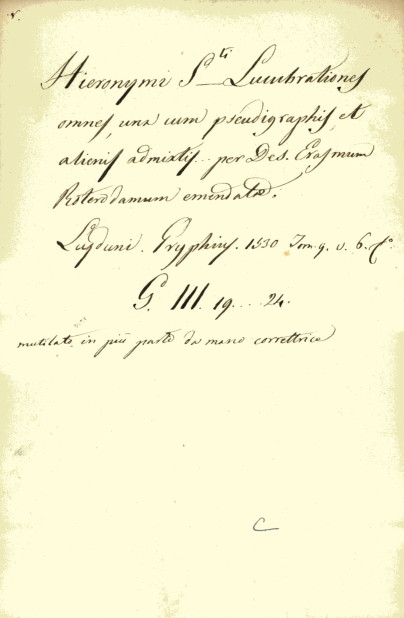 Hieronymi S.ti Lucubrationes
omnes, una cum pseudigraphis, et
alienis admixtis.. per Des. Erasmum
Roterodamum emendatæ.
Lugduni. Gryphius. 1530 Tom. 9. v. 6. f.o
G. III. 19... 24.
mutilate in più parti da mano correttrice
C